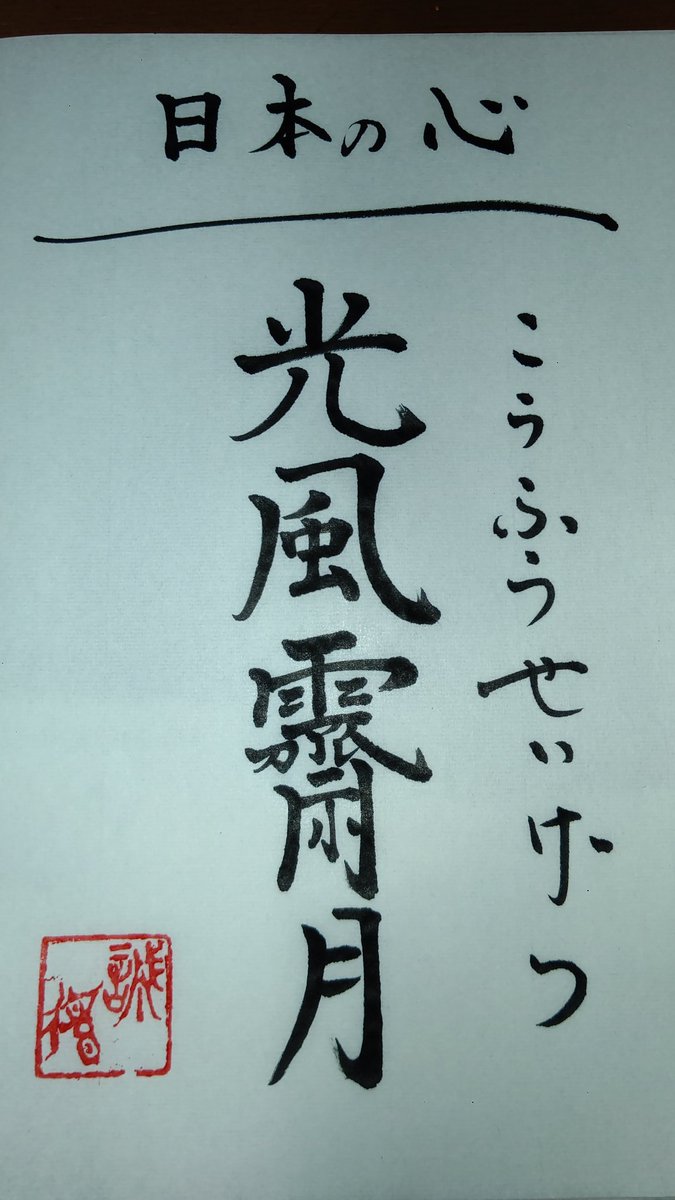 日本の心
こうふうせいげつ
光風霽月
誠